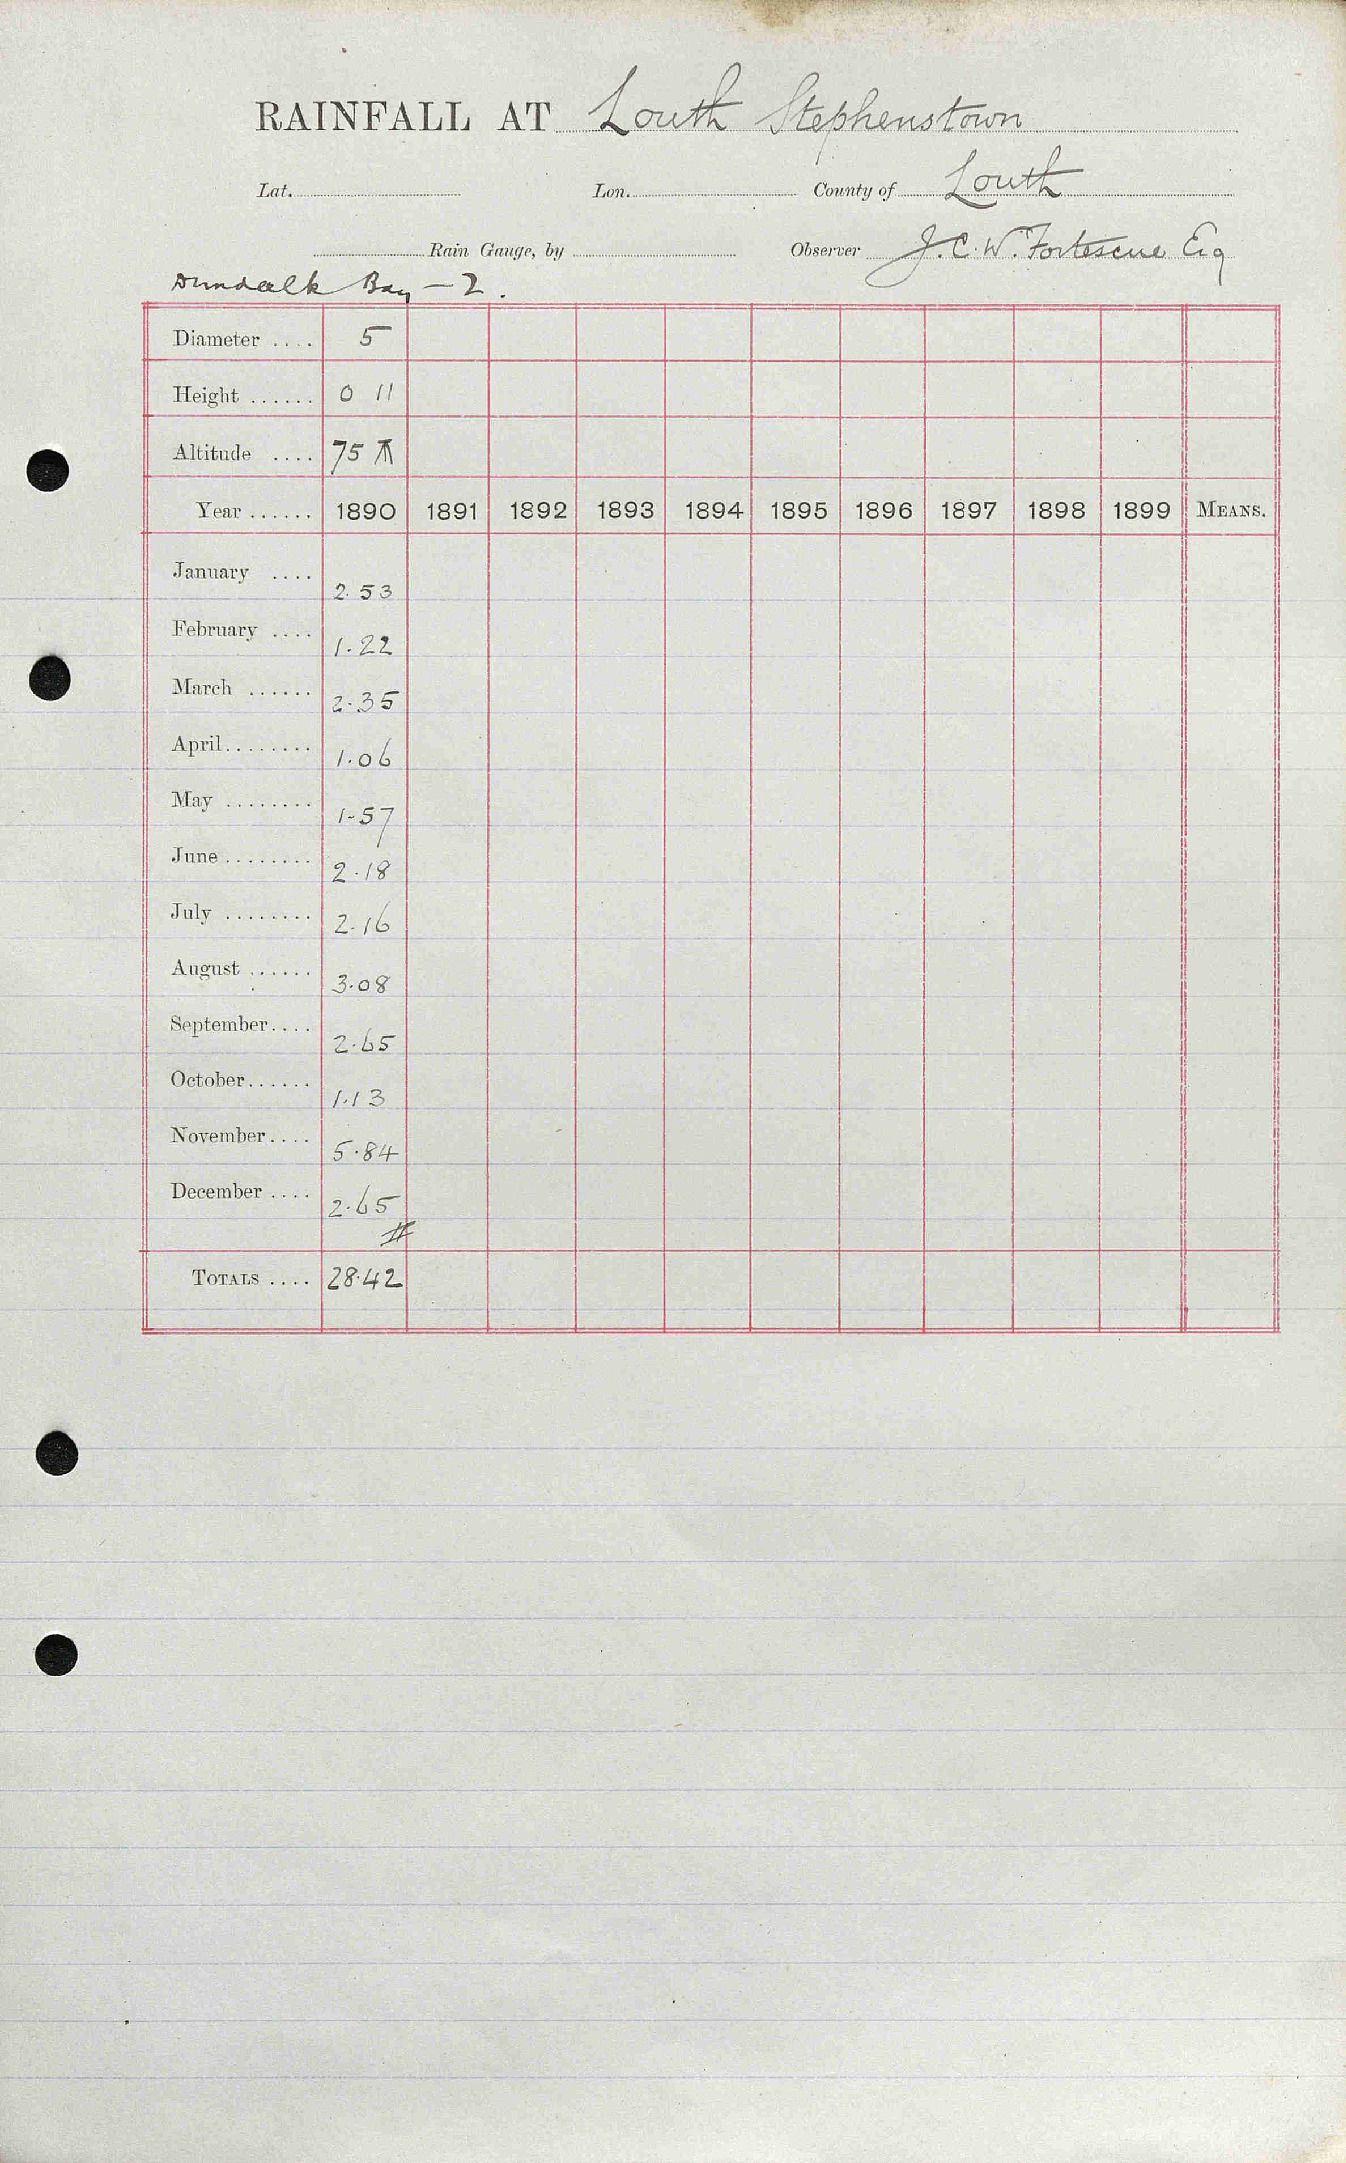 RAINFALL AT Louth Stephenstown
Lat. Lon. County of Louth
Rain Gauge, by Observer J. C. W. Fortescue Esq
Dundalk Bay – 2.
Diameter .... 5
Height ...... 0 11
Altitude .... 75
Year ...... 1890 1891 1892 1893 1894 1895 1896 1897 1898 1899 MEANS.
January .... 2.53
February .... 1.22
March ...... 2.35
April........ 1.06
May ........ 1-57
June ........ 2.18
July ........ 2.16
August ...... 3.08
September.... 2.65
October...... 1.13
November.... 5.84
December .... 2.65
TOTALS .... 28.42